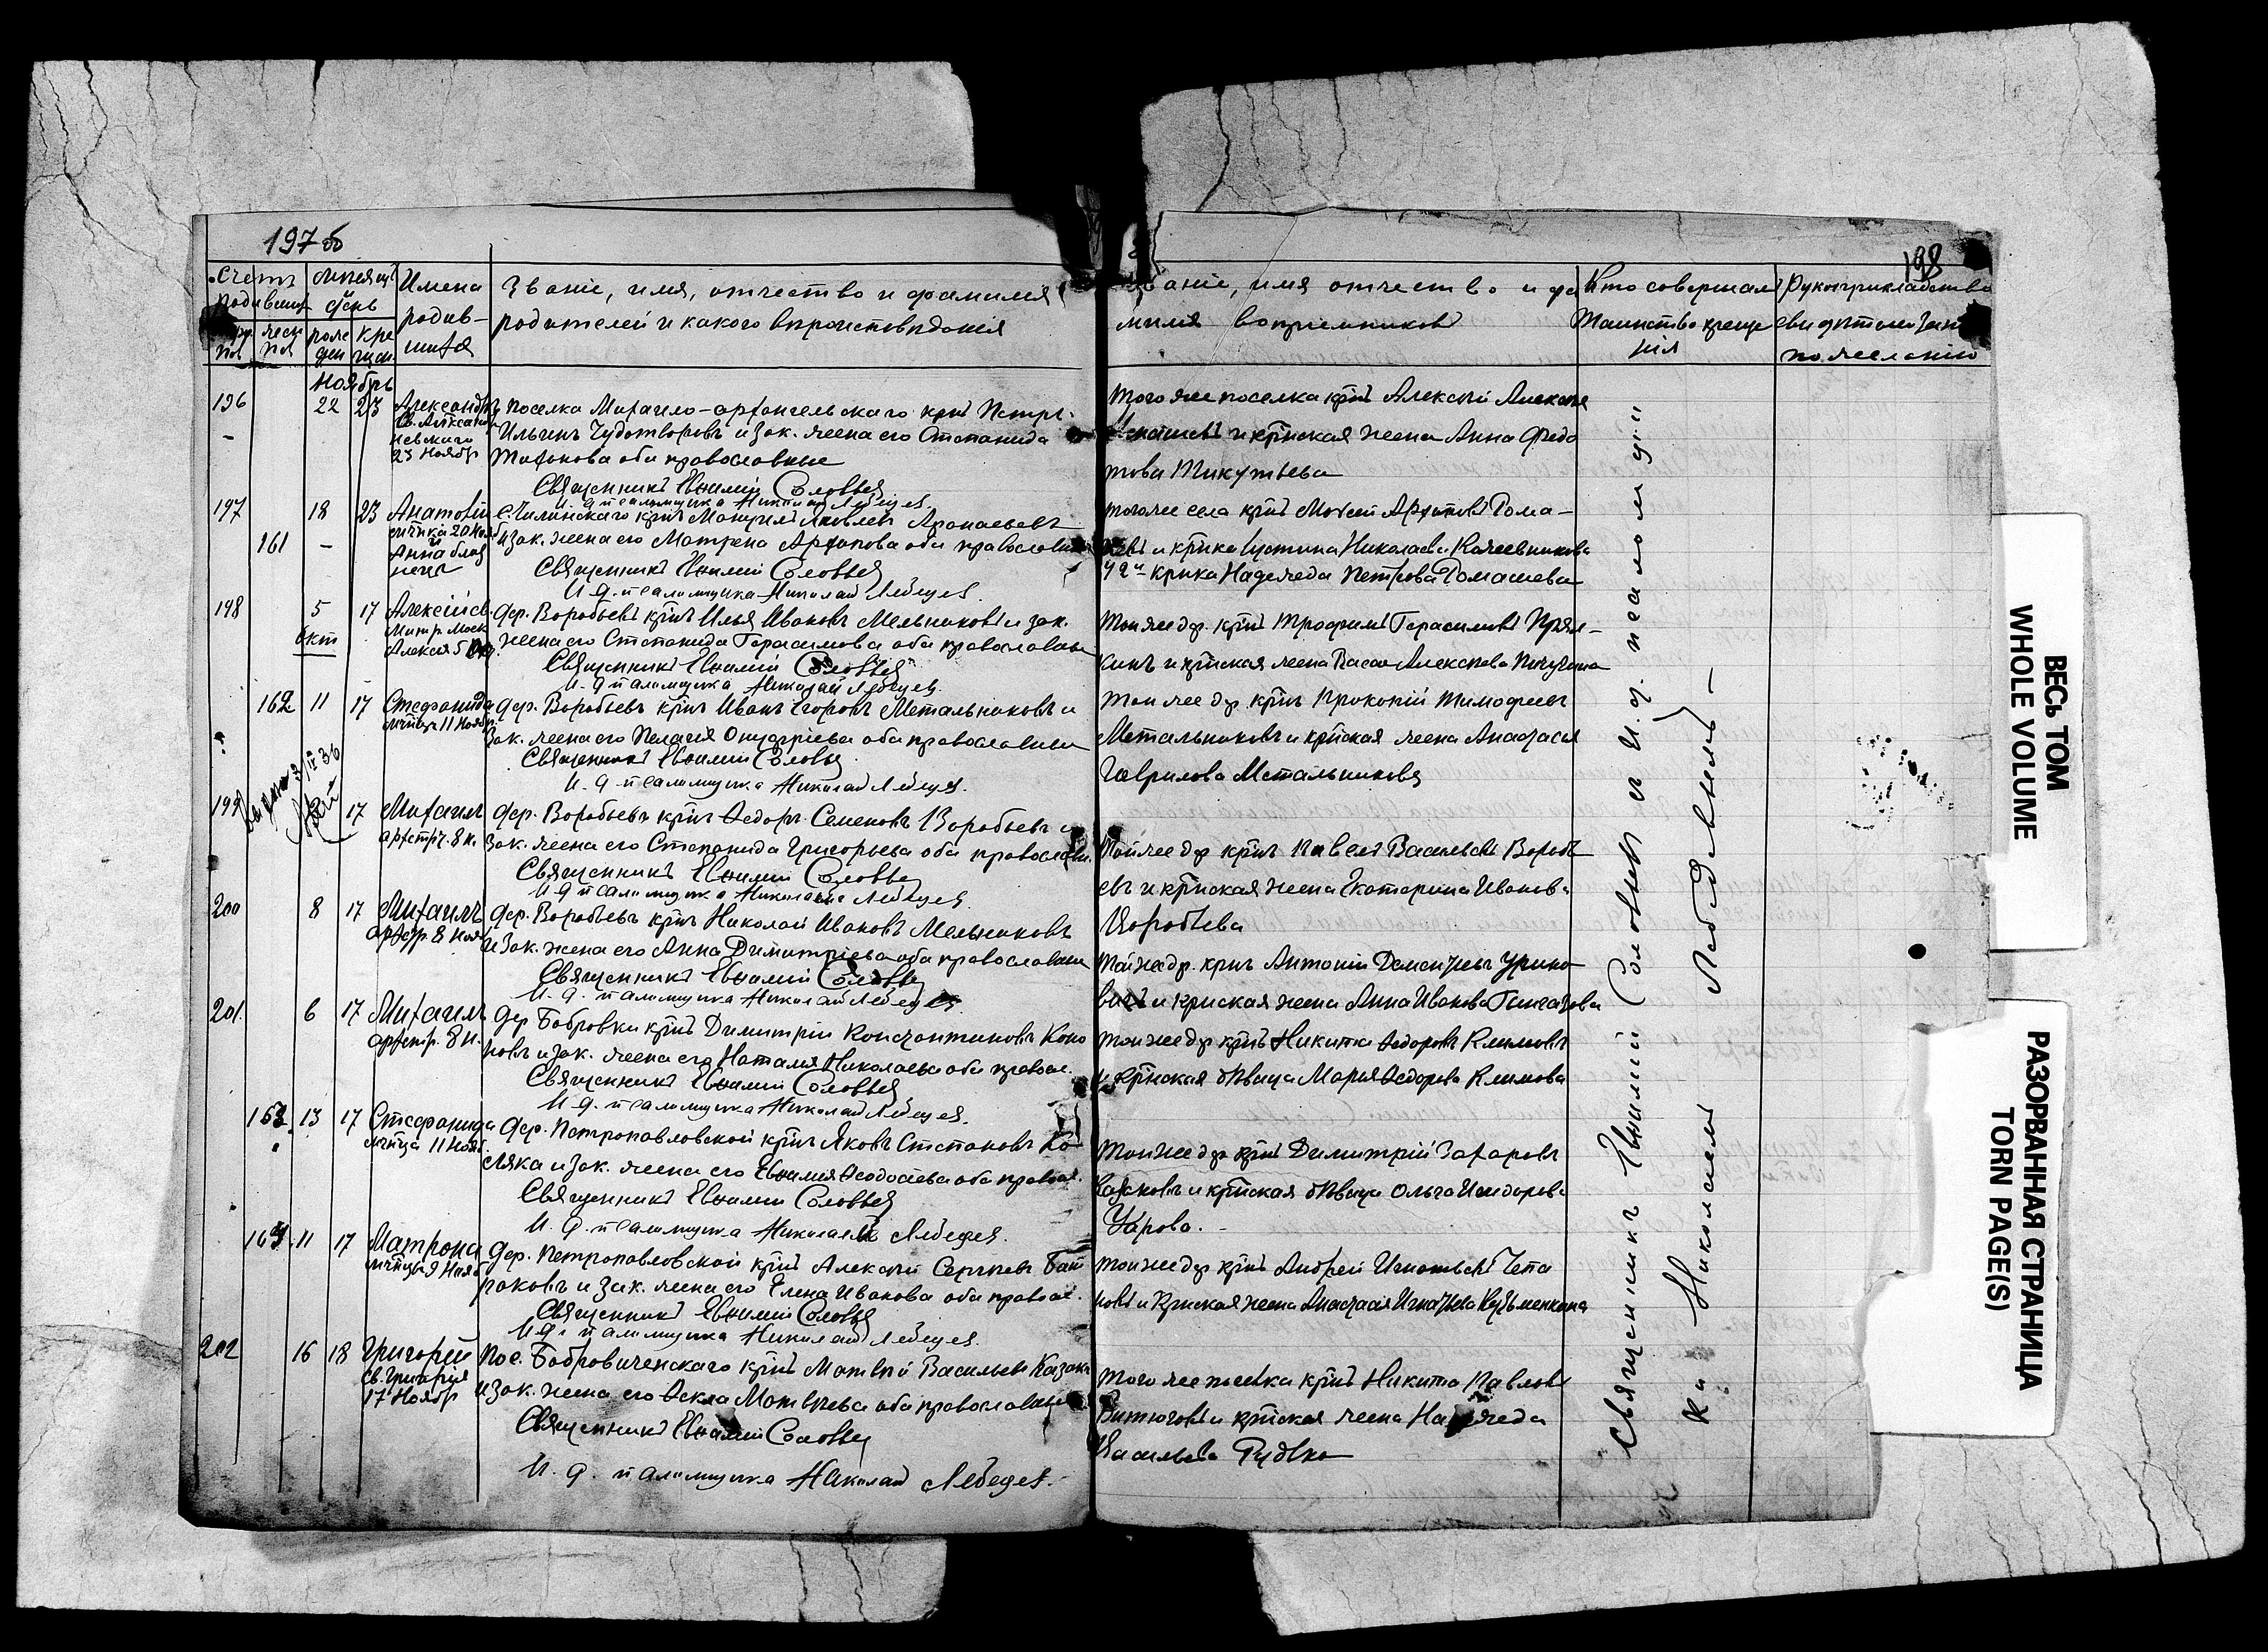 197 об
198
Счетъ родившихся
мѣсяцъ день
Имена родив-шихся
Званіе, имя, отчество и фамилія
родителей и какого вѣроисповѣданія
Званіе, имя отчество и фа
милія воспріемниковъ
Кто совершалъ
Таинство креще
нія
Рукоприкладство
свидѣтелей
по желанію
муж. пол
женск. пол
рожден
крещен.
Ноябрь
196 22 23 Александръ
Св. Александ.
невскаго
23 Ноябр
Поселка Михаило-архангельскаго крнъ Петръ
Ильинъ Чудотворовъ и зак. жена его Стефанида
Тихонова оба православные
Священникъ Евѳимій Соловьевъ
И. д. псаломщика Николай Лебедев.
Того же поселка крнъ Алексѣй Алексѣе
и крнская жена Анна Федо
това Микутьева
197 18 23 Анатолій
161 – мчнка 20 Нояб
и
Анна близ
нецы
с. Чилинскаго крнъ Яковлевъ
и зак. жена его Матрена Архипова оба православные
Священникъ Евѳимій Соловьевъ
И. д. псаломщика Николай Лебедев.
того же села крнъ Моисей Архиповъ Рома-
и крнка Устина Николаева Кожевникова
у 2й крнка Надежда Петрова Ромашева
198 5 17 Алексій св.
окт
Митр. Моск
Алексія 5 Окт.
дер. Воробьевъ крнъ Илья Ивановъ Мельниковъ и зак.
жена его Стефанида Герасимова оба православные
Священникъ Евѳимій Соловьевъ
И. д. псаломщика Николай Лебедев.
Той же др. крнъ Трофимъ Герасимовъ
и крнская жена Алексѣева
162 11 17 Стефанида
мчнцы 11 Ноябр.
дер. Воробьевъ крнъ Иванъ Егоровъ Метальниковъ и
зак. жена его Пелагія Онуфріева оба православные
Священникъ Евѳимій Соловьевъ
И. д. псаломщика Николай Лебедев.
Той же др крнъ Прокопій Тимофеевъ
Метальниковъ и крнская жена Анастасія
Гаврилова Метальникова
199 17 Михаилъ
архстр. 8 н.
дер. Воробьевъ крнъ Ѳедоръ Семеновъ Воробьевъ и
зак. жена его Стефанида Григорьева оба православн.
Священникъ Евѳимій Соловьевъ
И. д. псаломщика Николай Лебедев.
Той же др крнъ Павелъ Васильевъ Воробь
евъ и крнская жена Екатерина Иванова
Воробьева
200 8 17 Михаилъ
архстр. 8 Нояб
дер. Воробьевъ крнъ Николай Ивановъ Мельниковъ
и зак. жена его Анна Димитріева оба православные
Священникъ Евѳимій Соловьевъ
И. д. псаломщика Николай Лебедев
Той же др. крнъ Антоній Дементьев
и крнская жена Анна Иванова
201. 6 17 Михаилъ
архстр. 8 н.
дер Бобровки крнъ Димитрій Константиновъ Коно
новъ и зак. жена его Наталія Николаева оба правосл.
Священникъ Евѳимій Соловьевъ
И. д. псаломщика Николай Лебедев.
той же др крнъ Никита Ѳедоровъ Климовъ
и крнская дѣвица Марія Ѳедорова Климова
163. 13 17 Стефанида
мчнца 11 Нояб.
дер. Петропавловской крнъ Яковъ Степановъ Ко
сляка и зак. жена его Евѳимія Ѳеодосіева оба правосл.
Священникъ Евѳимій Соловьевъ
И. д. псаломщика Николай Лебедев.
той же др крнъ Димитрій Захаровъ
Казаковъ и крнская дѣвица Ольга Исидорова
Уварова. –
164. 11 17 Матрона
мчнцы 9 Нояб
дер. Петропавловской крнъ Алексѣй Сергѣевъ Бат
раковъ и зак. жена его Елена Иванова оба правосл.
Священникъ Евѳимій Соловьевъ
И. д. псаломщика Николай Лебедев.
той же др крнъ Андрей Игнатьевъ Чепа
новъ и крнская жена Анастасія Игнатьева Кузьменкина
202 16 18 Григорій
св. Григорія
17 Ноябр
Пос. Бобровиченскаго крнъ Матвѣй Васильевъ Казакъ
и зак. жена его Ѳекла Матвѣева оба православные
Священникъ Евѳимій Соловьевъ
И. д. псаломщика Николай Лебедев.
того же поселка крнъ Никита Павловъ
Битюговъ и крнская жена Надежда
Васильева Рудько
Священникъ Евѳимій Соловьевъ и И. д. псаломщи
ка Николаемъ Лебедевымъ –
ВЕСЬ ТОМ
WHOLE VOLUME
РАЗОРВАННАЯ СТРАНИЦА
TORN PAGE(S)